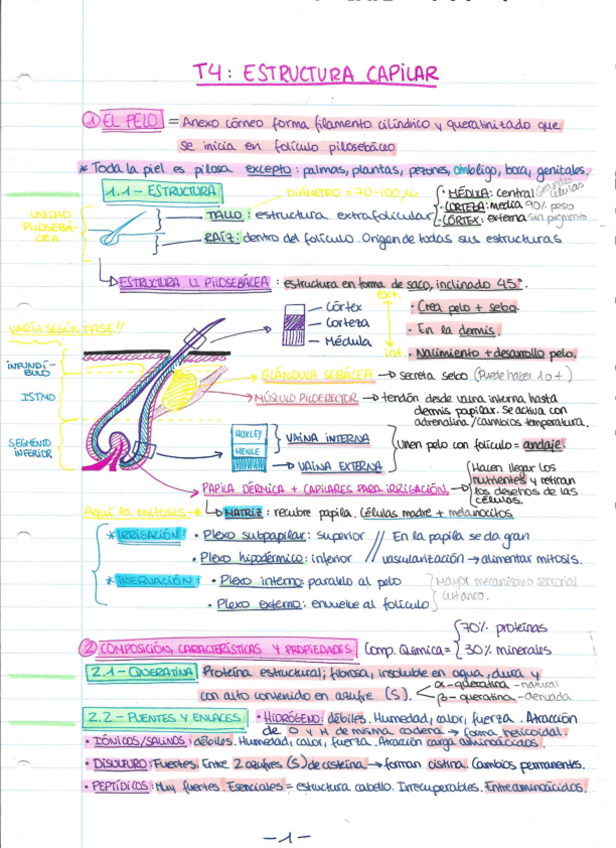 T4: ESTRUCTURA CAPILAR
① EL PELO = Anexo córneo forma filamento cilíndrico y queratinizado que
se inicia en folículo pilosebáceo
* Toda la piel es pilosa excepto: palmas, plantas, pezones, ombligo, boca, genitales.
1.1 - ESTRUCTURA
DIÁMETRO = 70-100 µ
UNIDAD PILOSEBÁ-
CEA
TALLO: estructura extrafolicular
· MÉDULA: central grandes células
· CORTEZA: media 90% peso
· CÓRTEX: externa sin pigmento
RAÍZ: dentro del folículo. Origen de todas sus estructuras
ESTRUCTURA U. PILOSEBÁCEA: estructura en forma de saco, inclinado 45º.
VARÍA SEGÚN FASE!!
Córtex
Corteza
Médula
ext.
int.
· Crea pelo + sebo.
· En la dermis.
· Nacimiento + desarrollo pelo.
INFUNDÍ-
BULO
ISTMO
SEGMENTO
INFERIOR
GLÁNDULA SEBÁCEA → secreta sebo (Puede haber 1 o +)
MÚSCULO PILOERECTOR → tendón desde vaina interna hasta
dermis papilar. Se activa con
adrenalina/cambios temperatura.
HUXLEY
HENLE
VAINA INTERNA
VAINA EXTERNA
Unen pelo con folículo = andaje.
PAPILA DÉRMICA + CAPILARES PARA IRRIGACIÓN →
Hacen llegar los
nutrientes y retiran
los desechos de las
células.
Aquí la mitosis → MATRIZ: recubre papila. Células madre + melanocitos
* IRRIGACIÓN: · Plexo subpapilar: superior // En la papila se da gran
· Plexo hipodérmico: inferior // vascularización → alimentar mitosis.
* INERVACIÓN: · Plexo interno: paralelo al pelo
· Plexo externo: envuelve al folículo
Mayor mecanismo sensorial
cutáneo.
② COMPOSICIÓN, CARACTERÍSTICAS Y PROPIEDADES Comp. Química =
70% proteínas
30% minerales
2.1 - QUERATINA Proteína estructural, fibrosa, insoluble en agua, dura y
con alto contenido en azufre (S).
α-queratina - natural
β-queratina - derivada
2.2 - PUENTES Y ENLACES · HIDRÓGENO: débiles. Humedad, calor, fuerza. Atracción
de O y H de misma cadena → forma helicoidal.
· IÓNICOS/SALINOS: débiles. Humedad, calor, fuerza. Atracción carga aminoácidos.
· DISULFURO: Fuertes. Entre 2 azufres (S) de cisteína → forman cistina. Cambios permanentes.
· PEPTÍDICOS: Muy fuertes. Esenciales = estructura cabello. Irrecuperables. Entre aminoácidos.
-1-